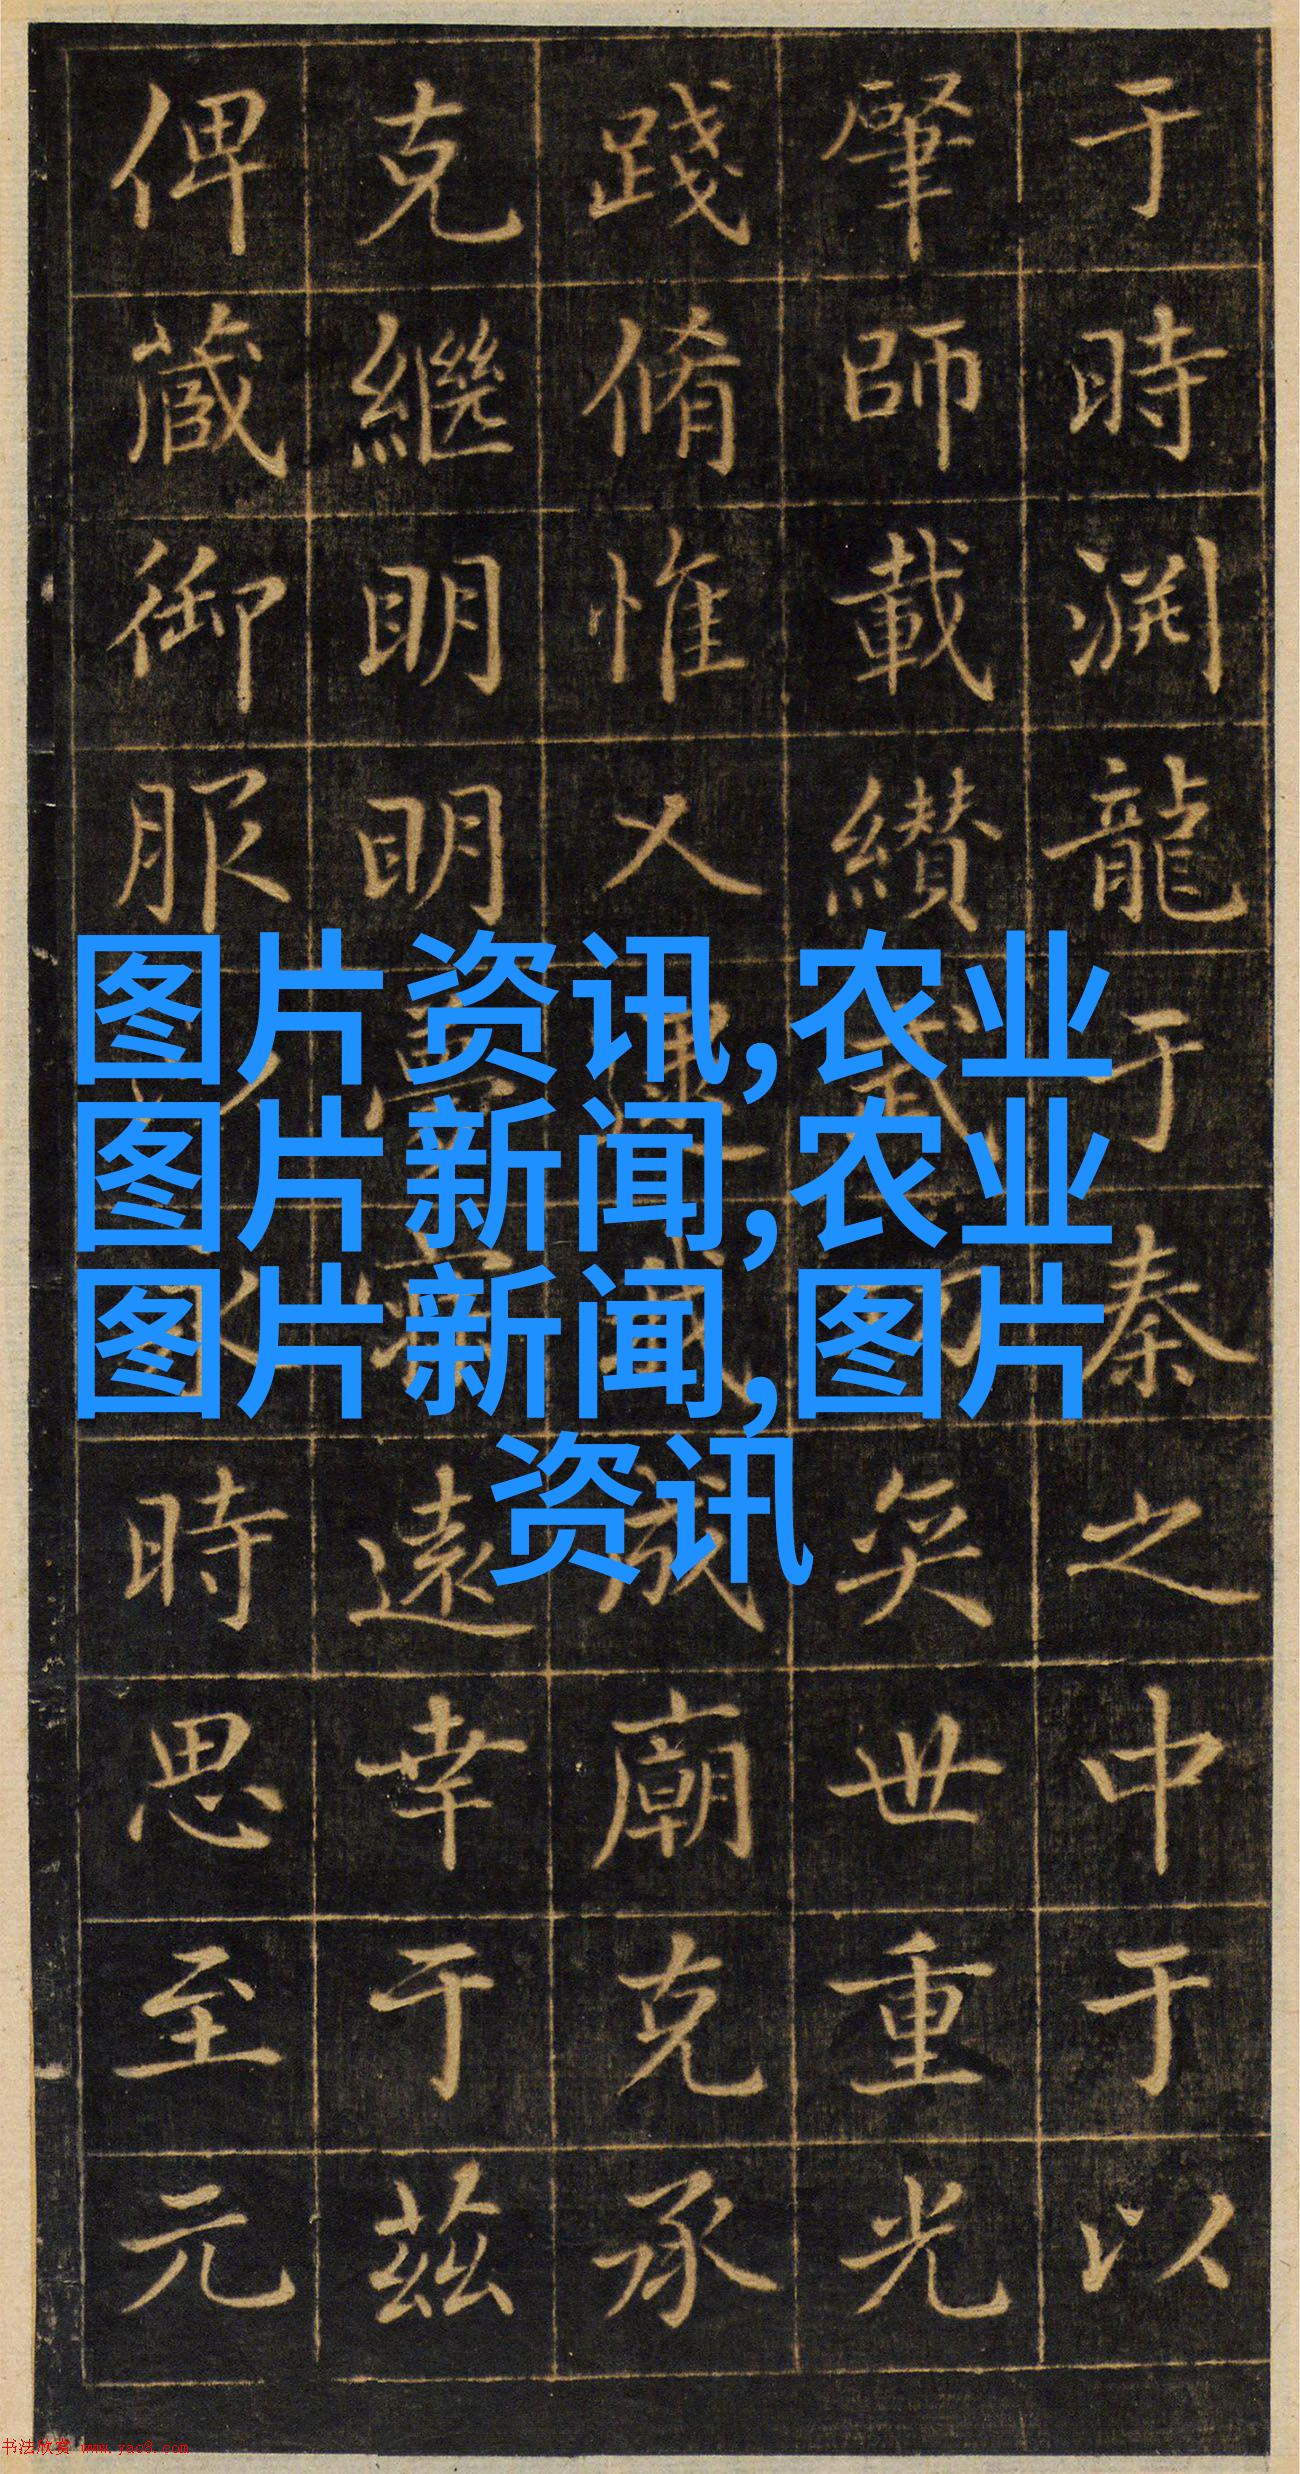 于時渕龍于秦之中于以
肇師載纘武奕世重光
踐脩惟乂建成廟克承
克繼明明遠幸于茲
俾蕆御服時思至元
图片资讯,农业
图片新闻,农业
图片新闻,图片
资讯
书法欣赏 www.yac8.com